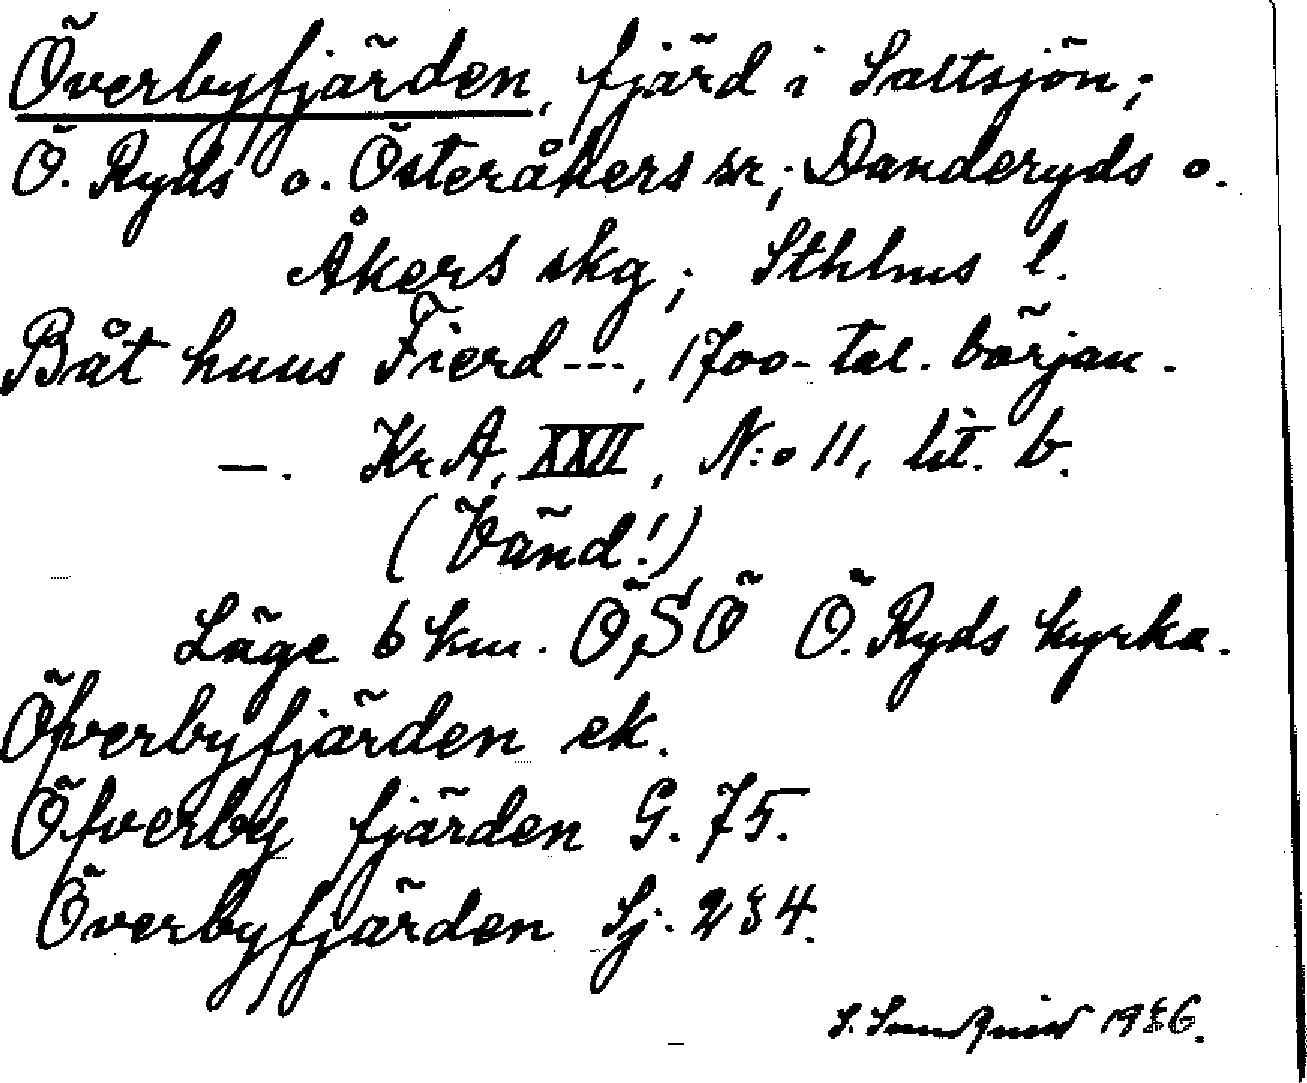 Överbyfjärden, fjärd i Saltsjön;
Ö. Ryds o. Österåkers sr; Danderyds o.
Åkers skg; Sthlms l.
Båt huus Fierd ---, 1700-tal. början.
—. Kr.A, XXII, N:o 11, lit. b.
(Vänd!)
Läge 6 km. ÖSÖ Ö. Ryds kyrka.
Öfverbyfjärden ek.
Öfverby fjärden G. 75.
Överbyfjärden Sj. 234.
S. Sundquist 1936.